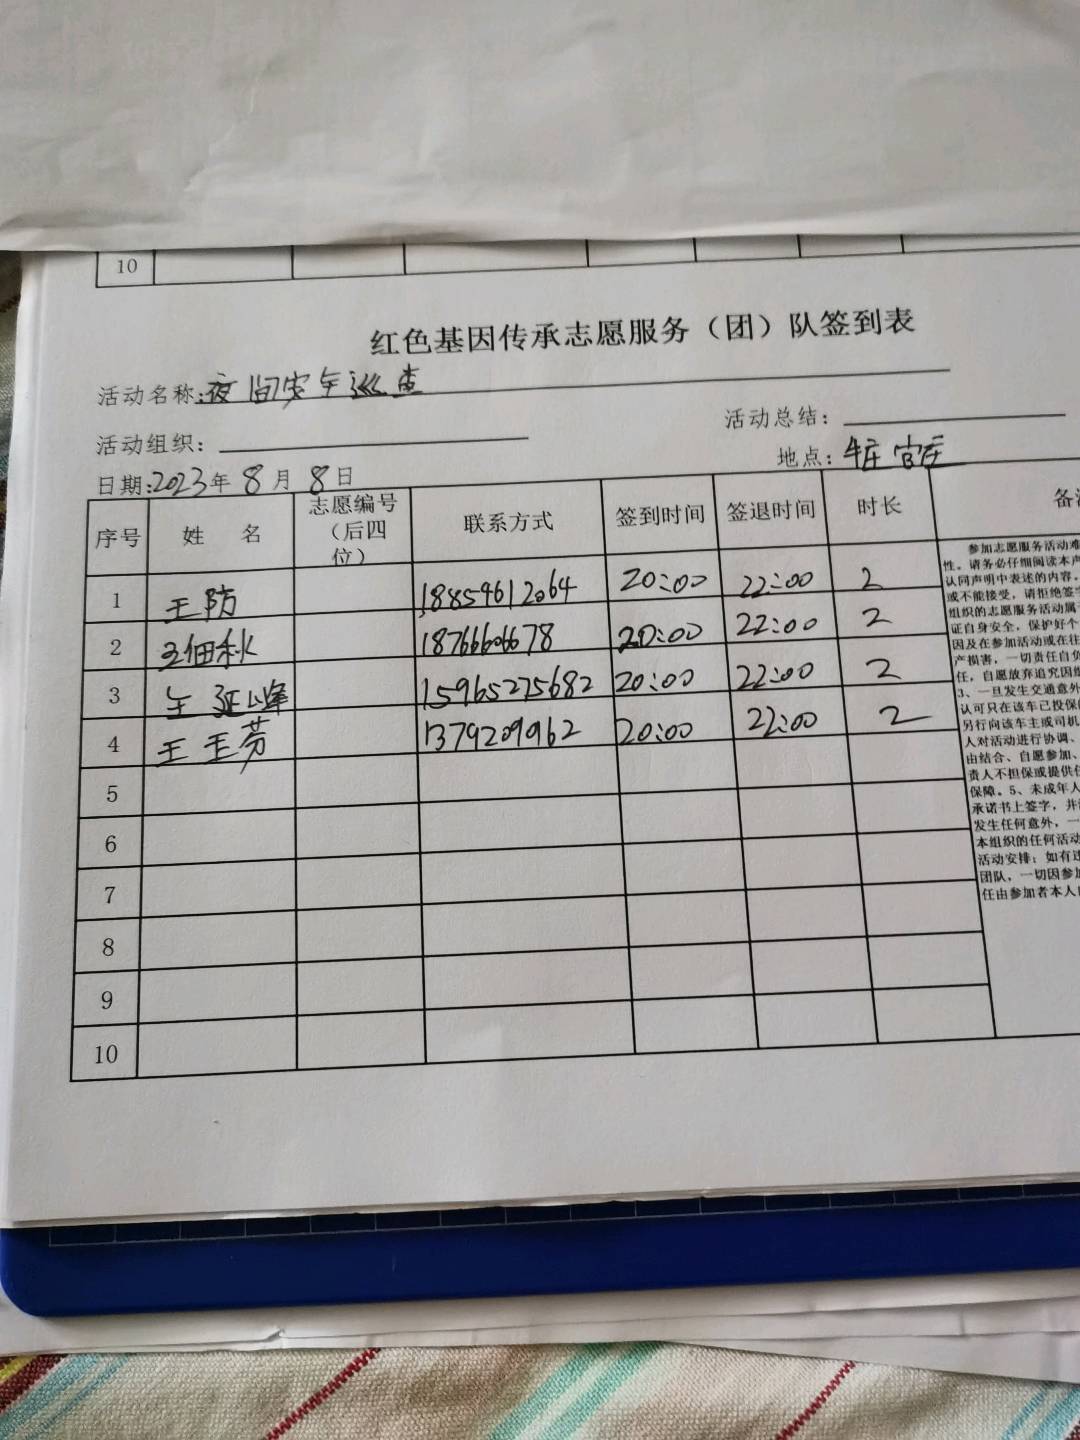 10
红色基因传承志愿服务（团）队签到表
活动名称:夜间安全巡查
活动组织： 活动总结：
日期:2023年8月8日 地点： 官庄
序号 姓 名 志愿编号（后四位） 联系方式 签到时间 签退时间 时长 备
1 王防 18859612064 20:00 22:00 2
2 18766606678 20:00 22:00 2
3 王延峰 15965275682 20:00 22:00 2
4 王玉芳 1379209962 20:00 22:00 2
5
6
7
8
9
10
参加志愿服务活动难
性。请务必仔细阅读本声
认同声明中表述的内容，
或不能接受，请拒绝签字
组织的志愿服务活动属
证自身安全，保护好个
因及在参加活动或在往
产损害，一切责任自负
任，自愿放弃追究因组
3、一旦发生交通意外
认可只在该车已投保
另行向该车主或司机
人对活动进行协调、
由结合、自愿参加、
责人不担保或提供任
保障。5、未成年人
承诺书上签字，并
发生任何意外，一
本组织的任何活动
活动安排；如有违
团队，一切因参加
任由参加者本人